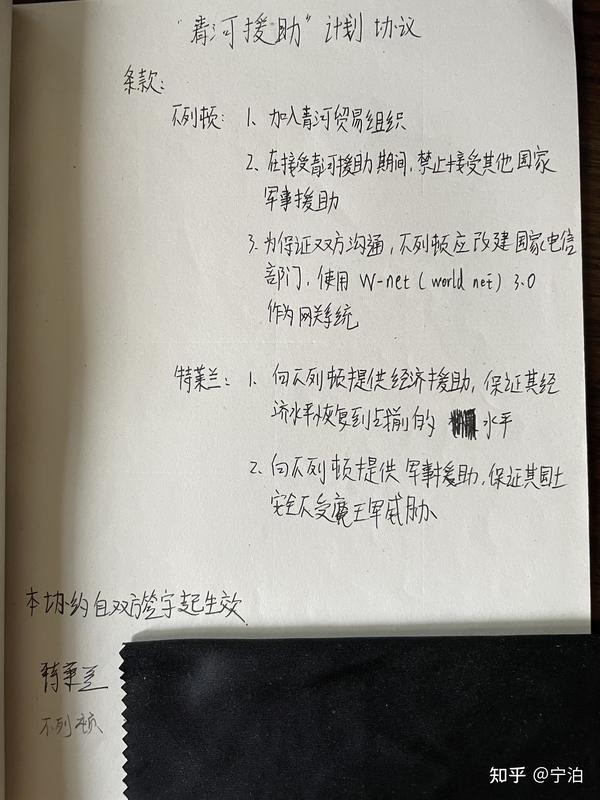 "青河援助"计划协议
条款:
不列顿: 1. 加入青河贸易组织
2. 在接受青河援助期间,禁止接受其他国家
军事援助
3. 为保证双方沟通,不列顿应改建国家电信
部门,使用 W-net (world net) 3.0
作为网关系统
特莱兰: 1. 向不列顿提供经济援助,保证其经
济水平恢复到战前的 水平
2. 向不列顿提供军事援助,保证其国土
安全不受魔王军威胁
本协约自双方签字起生效
特莱兰
不列顿
知乎 @宁泊